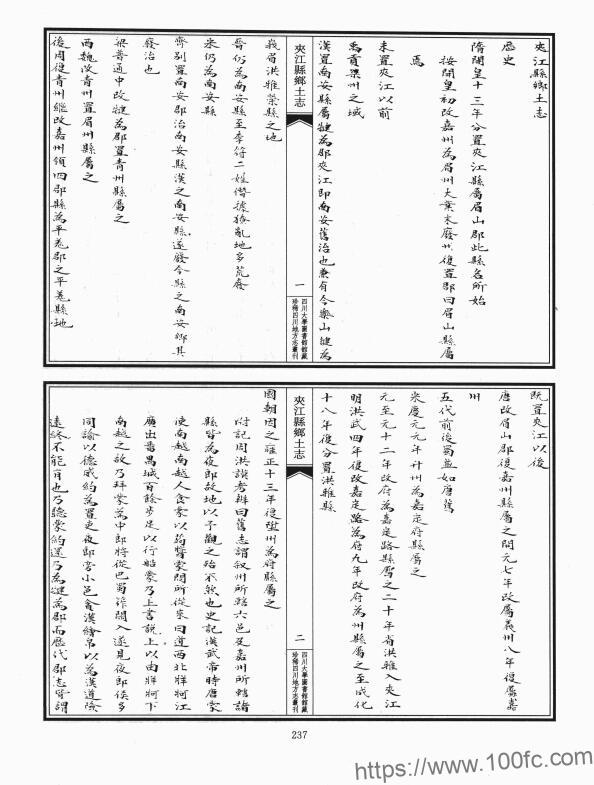 夾江縣鄉土志
歷史
隋開皇十三年分置夾江縣屬眉山郡此縣名所始
按開皇初改嘉州為眉州大業末廢廿復置郡曰眉山縣屬
焉
未置夾江以前
禹貢梁州之域
漢置南安縣屬犍為郡夾江即南安舊治也兼有今樂山犍為
夾江縣鄉土志
一
四川大學圖書館館藏
珍稀四川地方志叢刊
峩眉洪雅榮縣之地
晉仍為南安縣至李符二姓僭據擾亂地多荒廢
宋仍為南安縣
齊別置南安郡治南安縣漢之南安縣遂廢今縣之南安鄉其
廢治也
梁普通中改犍為郡置青州縣屬之
西魏改青州置眉州縣屬之
後周復青州繼改嘉州領四郡縣為平羌郡之平羌縣地
既置夾江以後
唐改眉山郡復嘉州縣屬之開元七年改屬義州八年復屬嘉
州
五代前後蜀並如唐舊
宋慶元元年升州為嘉定府縣屬之
元至元十二年改府為嘉定路縣屬之二十年省洪雅入夾江
明洪武四年復改嘉定路為府九年改府為州縣屬之至成化
十八年復分置洪雅縣
夾江縣鄉土志
二
四川大學圖書館館藏
珍稀四川地方志叢刊
國朝因之雍正十三年復陞州為府縣屬之
附記周洪謨考辨曰舊志謂叙州所轄六邑及嘉州所轄諸
縣皆為夜郎故地以予觀之殆不然也史記漢武帝時唐蒙
使南越南越人食蒙以蒟醬蒙問所從來曰道西北牂牁江
廣出番禺城百餘步足以行船蒙乃上書說上以由牂牁下
南越之故乃拜蒙為中郎將從巴蜀筰關入遂見夜郎侯多
同諭以德威約為置吏夜郎旁小邑貪漢繒帛以為漢道險
遠終不能有也乃聽蒙約還乃為犍為郡而歷代郡志皆謂
237
https://www.100fc.com